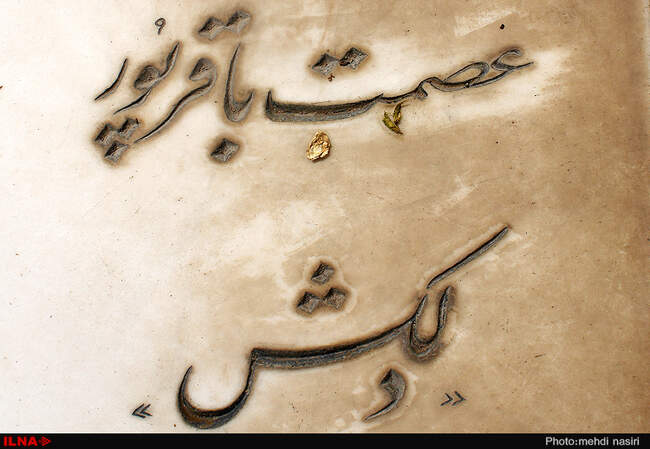 عصمت باقرپور
«دلکش»
ILNA Photo:mehdi nasiri